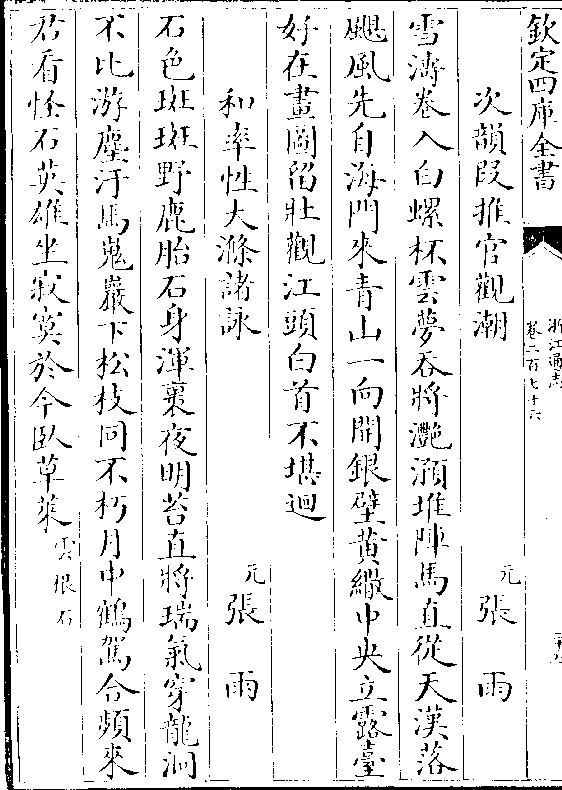 欽定四庫全書
浙江通志
卷二百七十六
次韻段推官觀潮
元張雨
雪濤卷入白螺杯雲夢吞將灔澦堆陣馬直從天漢落
颶風先自海門來青山一向開銀壁黄繖中央立露臺
好在畫圖留壯觀江頭白首不堪迴
和率性大滌諸詠
元張雨
石色斑斑野鹿胎石身渾裹夜明苔直將瑞氣穿龍洞
不比游塵汙馬嵬巖下松枝同不朽月中鶴駕合頻來
君看怪石英雄坐寂寞於今臥草萊雲根石